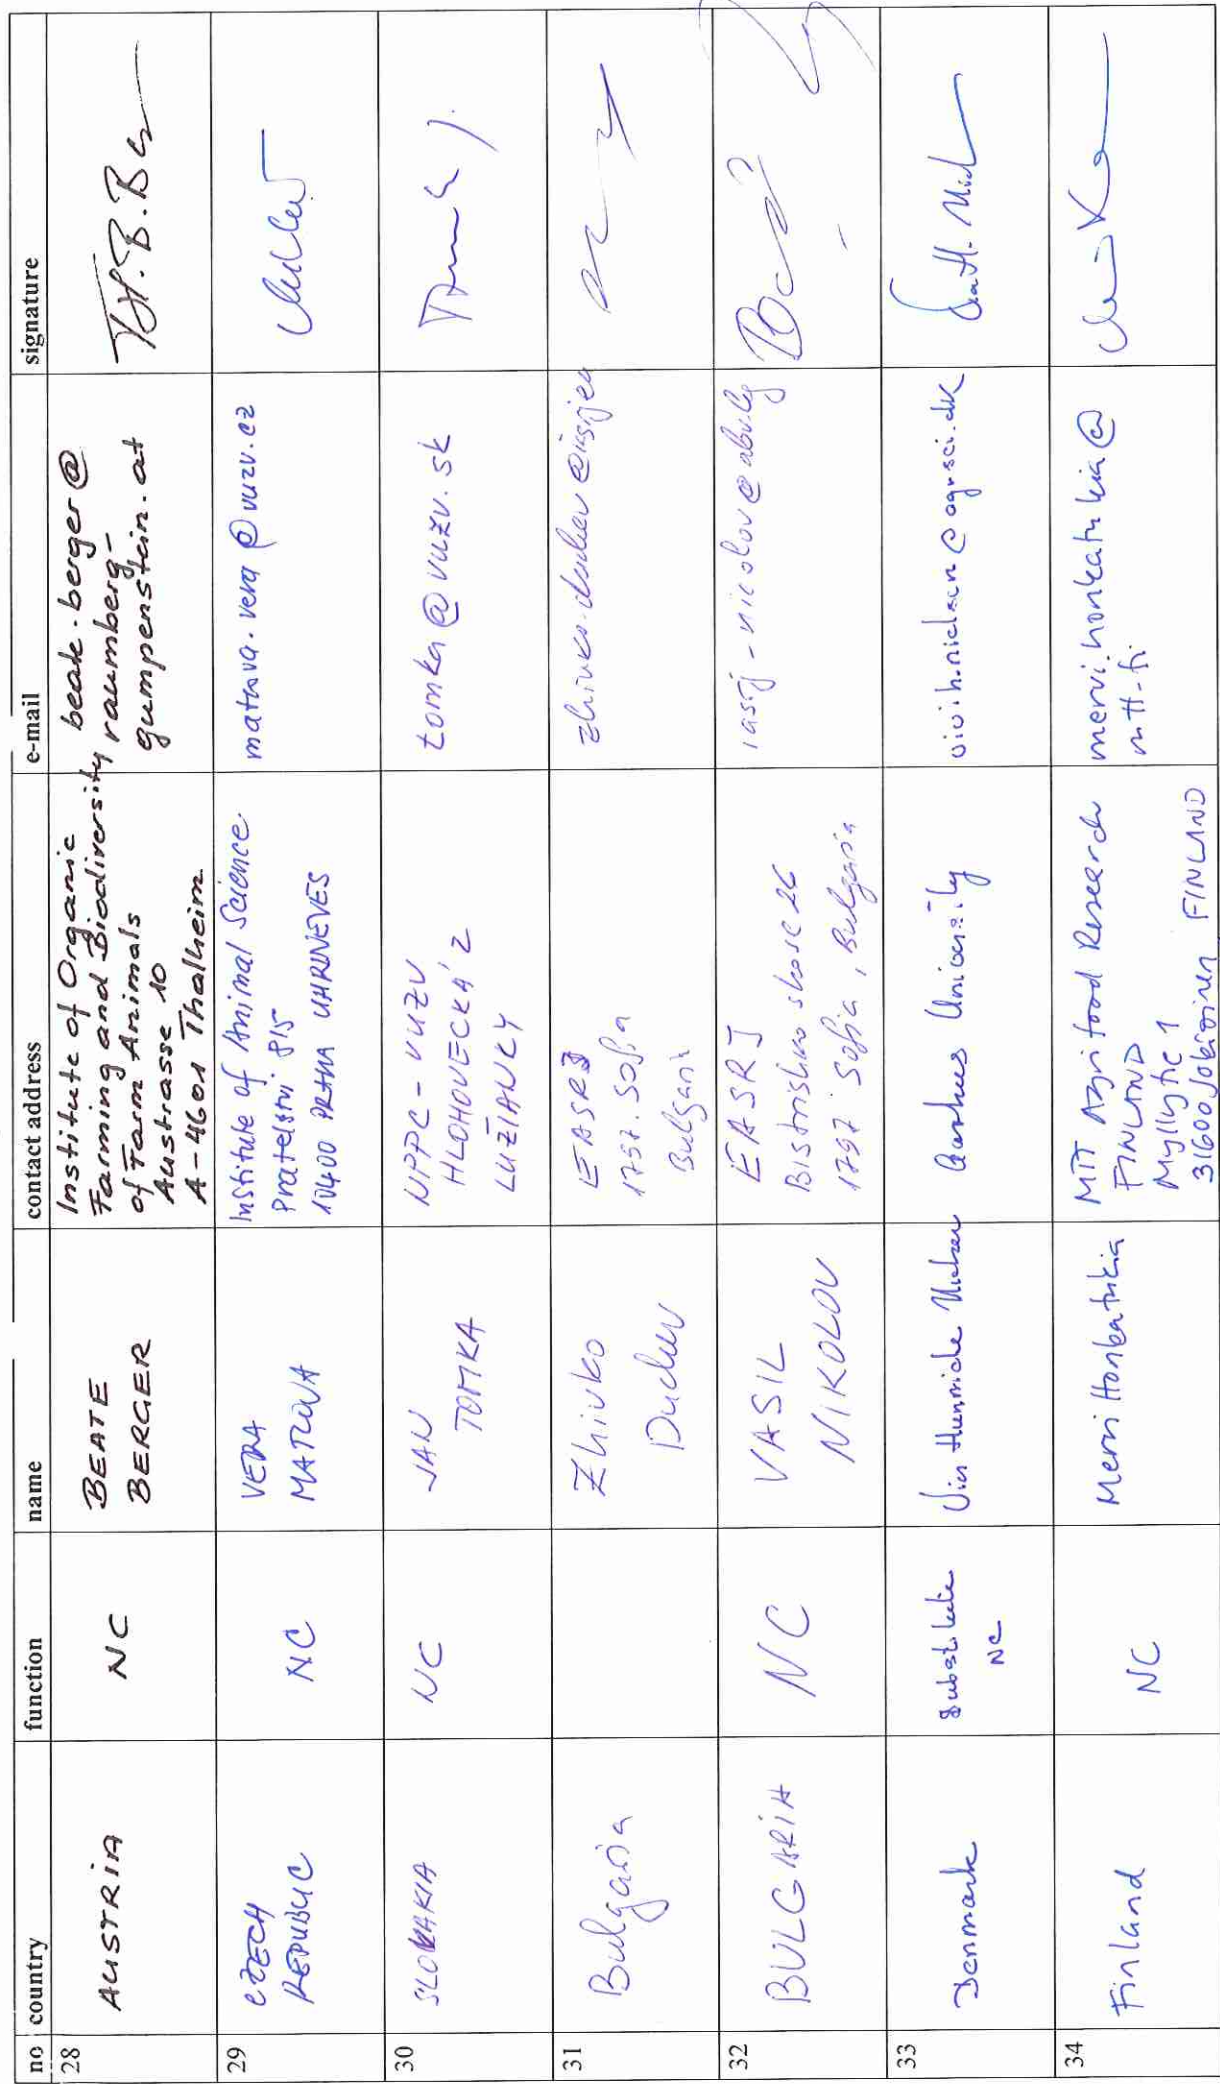 no country function name contact address e-mail signature
28
AUSTRIA
NC
BEATE
BERGER
Institute of Organic
Farming and Biodiversity
of Farm Animals
Austrasse 10
A-4601 Thalheim
beate.berger@
raumberg-
gumpenstein.at
29
CZECH
REPUBLIC
NC
VERA
MATLOVA
Institute of Animal Science
Pratelstvi 815
10400 PRAHA UHRINEVES
matlova.vera@vuzv.cz
30
SLOVAKIA
NC
JAN
TOMKA
NPPC - VUZV
HLOHOVECKÁ 2
LUŽIANKY
tomka@vuzv.sk
31
Bulgaria
Zhivko
Duchev
EASRJ
1797. Sofia
Bulgaria
32
BULGARIA
NC
VASIL
NIKOLOV
EASRJ
Bistrishko shose 26
1797 Sofia, Bulgaria
33
Denmark
Substitute
NC
Aarhus University
vivih.nielsen@agrsci.dk
34
Finland
NC
Mervi Honkatukia
MTT Agrifood Research
FINLAND
Myllytie 1
31600 Jokioinen FINLAND
mervi.honkatukia@
mtt.fi